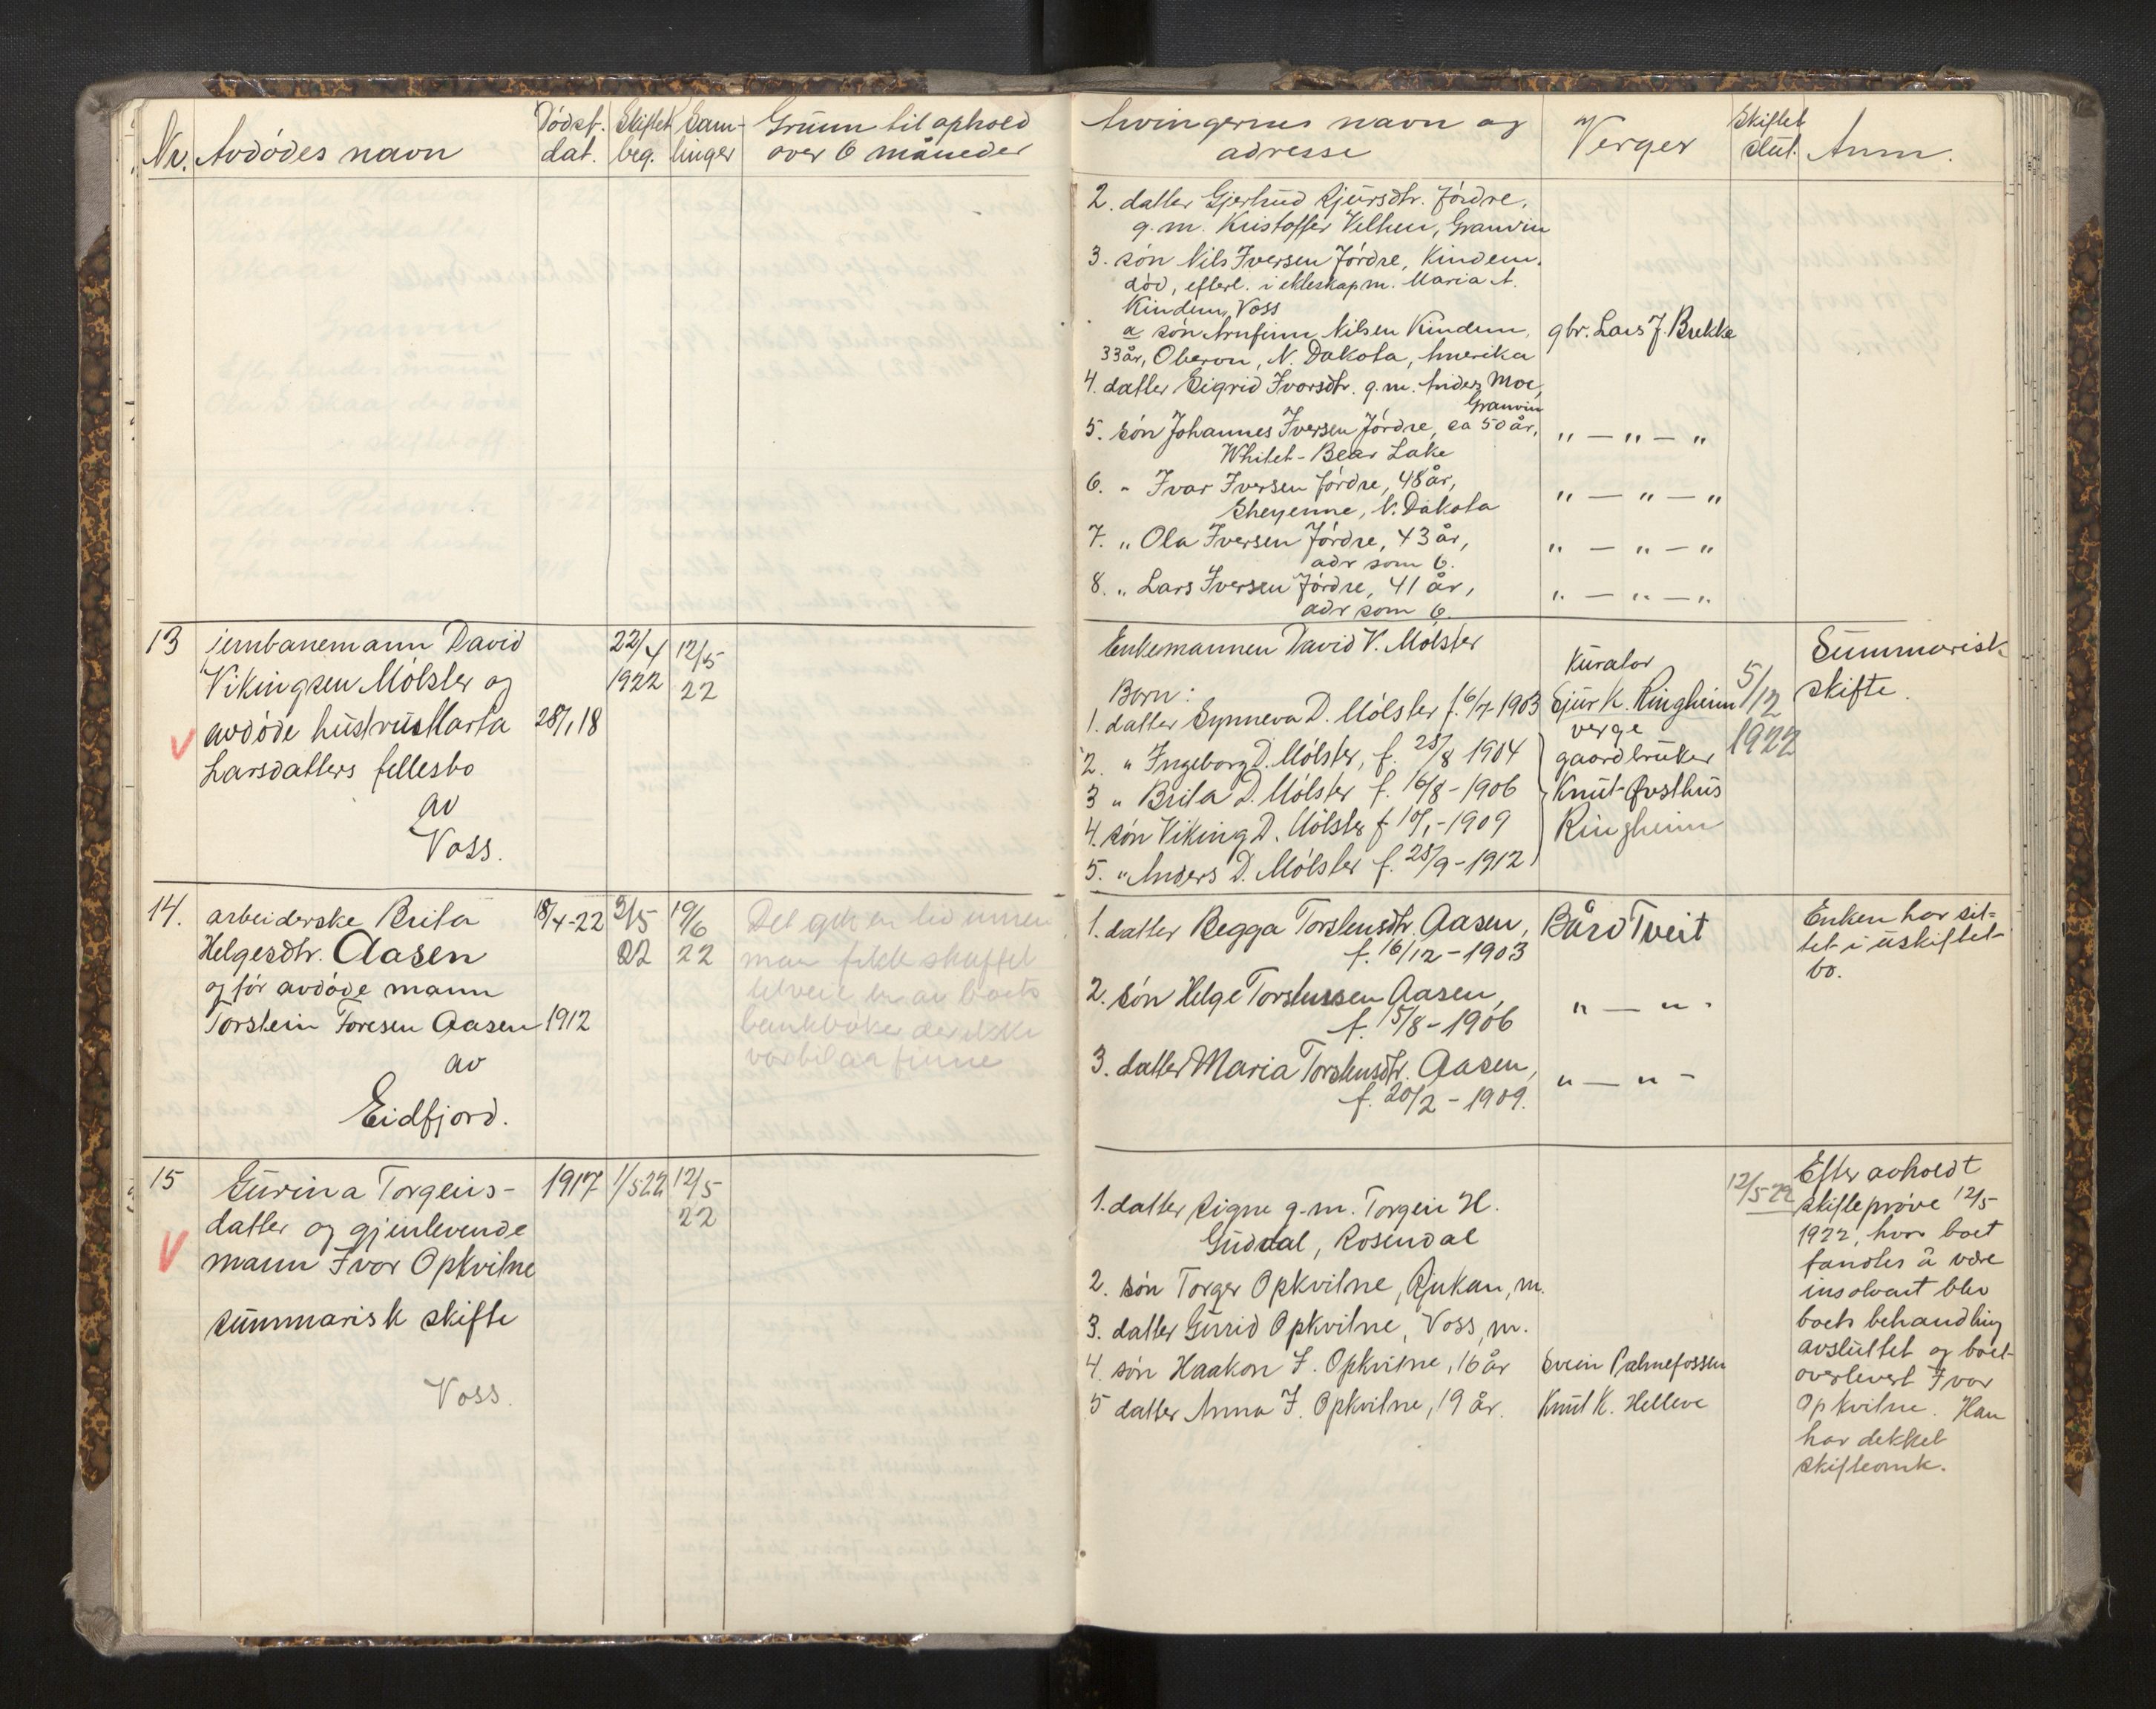 Nr. Avdödes navn
Dödsf. dat.
Skiftet beg.
Sam-
linger
Grunn til ophold
over 6 måneder
Arvingernes navn og
adresse
Verger
Skiftet
slut.
Anm.
2. datter Gjertrud Sjursdtr. Jördre,
g.m. Kristoffer Velken, Granvin
3. sön Nils Iversen Jördre, Kindem,
död, efterl. i ekteskap m. Maria A.
Kindem, Voss
a sön Arnfinn Nilsen Kindem, gbr. Lars J. Brekke
33 år, Oberon, N. Dakota, Amerika
4. datter Sigrid Ivorsdtr. g.m. Anders Moe,
Granvin
5. sön Johannes Iversen Jördre, ca 50 år, " — " — "
Whitet-Bear Lake
6. " Ivar Iversen Jördre, 48 år, " — " — "
Sheyenne, N. Dakota
7. " Ola Iversen Jördre, 43 år, " — " — "
adr som 6.
8. " Lars Iversen Jördre, 41 år, " — " — "
adr som 6
13 jernbanemann David
Vikingsen Mölster og
avdöde hustru Marta 28/1 18
Larsdatters fellesbo
av
Voss.
22/4
1922
12/5
22
Enkemannen David V. Mölster
Born:
1. datter Synneva D. Mölster f. 6/7-1903
2. " Ingeborg D. Mölster, f. 25/8 1904
3 " Brita D. Mölster f. 16/8-1906
4. sön Viking D. Mölster f 10/1-1909
5. " Anders D. Mölster f. 25/9-1912
Kurator
Sjur K. Ringheim
verge
gaardbruker
Knut Övsthus
Ringheim
5/12
1922
Summarisk
skifte.
14. arbeiderske Brita 18/4-22
Helgesdtr. Aasen
og för avdöde mann
Torstein Toresen Aasen 1912
av
Eidfjord.
3/5
22
19/6
22
Det gik en tid innen
man fikk skaffet
tilveie en av boets
bankböker der ikke
var til aa finne
1. datter Begga Torsteinsdtr. Aasen, Bård Tveit
f. 16/12-1903
2. sön Helge Torsteinsen Aasen, " — " -
f. 15/8-1906
3. datter Maria Torsteinsdtr. Aasen, " — " -
f. 20/2-1909.
Enken har sit-
tet i uskiftet
bo.
15 Gurina Torgeirs- 1917 1/5 22 12/5
22
datter og gjenlevende
mann Ivar Opkvitne
summarisk skifte
Voss.
1. datter Signe g.m. Torgeir H.
Guddal, Rosendal
2. sön Torger Opkvitne, Rjukan, m.
3. datter Gurid Opkvitne, Voss, m.
4. sön Haakon I. Opkvitne, 16 år Svein Palmefossen
5 datter Anna I. Opkvitne, 19 år. Knut K. Helleve
12/5 22
Efter avholdt
skiftepröve 12/5
1922, hvor boet
fandtes å være
insolvent blev
boets behandling
avsluttet og boet
overlevert Ivar
Opkvitne. Han
har dekket
skifteomk.